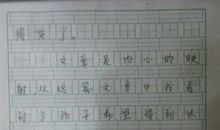 得笑了。
文章是内心的映
射从这篇文章中我看
到了孩子希望得到快